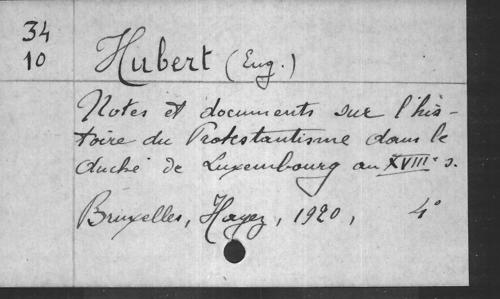 34
10
Hubert (Eug.)
Notes et documents sur l'his-
toire du Protestantisme dans le
duché de Luxembourg au XVIIIe s.
Bruxelles, Hayez, 1920, 4°